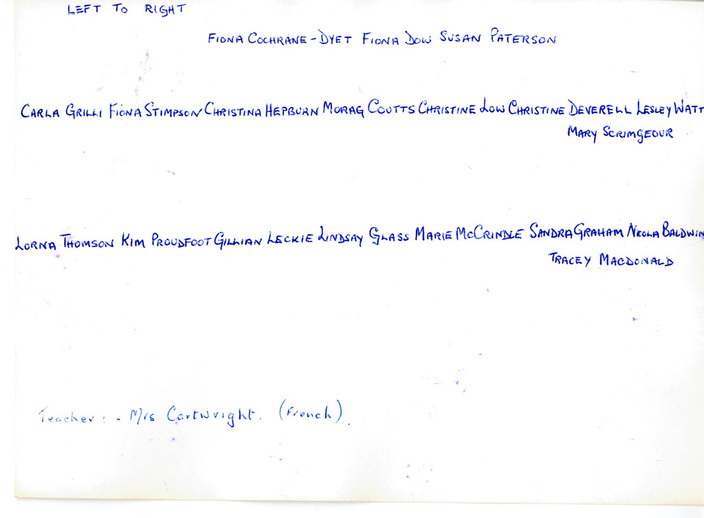 LEFT TO RIGHT
FIONA COCHRANE-DYET FIONA DOW SUSAN PATERSON
CARLA GRILLI FIONA STIMPSON CHRISTINA HEPBURN MORAG COUTTS CHRISTINE LOW CHRISTINE DEVERELL LESLEY WATT
MARY SCRIMGEOUR
LORNA THOMSON KIM PROUDFOOT GILLIAN LECKIE LINDSAY GLASS MARIE MCCRINDLE SANDRA GRAHAM NICOLA BALDWIN
TRACEY MACDONALD
Teacher:- Mrs Cartwright. (French).